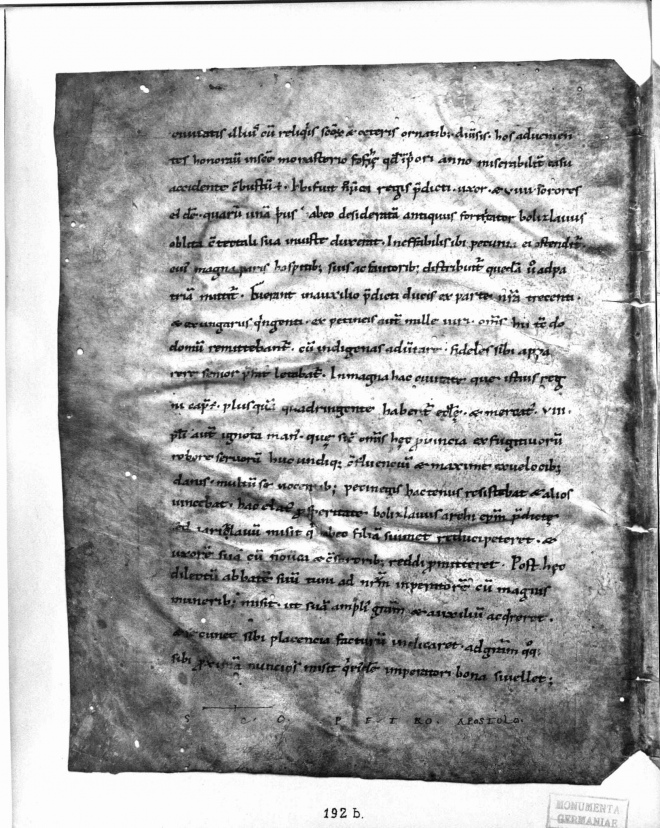 ciuitatis illiuſ cū reliq̇iſ scōꝝ & ceteris ornatib; diūsis hos aduenien
tes honorauit in scē monasterio soffhię qd̄ in p̄ori anno miserabilit̄ casu
accidente c̄bustū ē. Ibi fuit regis p̄dicti uxor & VIIII sorores
eiꝰdē quarū unā p̄us ab eo desideratā antiquus fornicator bolizlauus
oblita c̄tectali sua iniuste duxerat. Ineffabilis ibi pecunia ei ostendit̄
cuiꝰ magnā partē hospitib; suis ac fautorib; distribuit quedā ū̊ ad pa
triā mittit. Fuerant in auxilio p̄dicti ducis ex parte nr̄a trecenti
& ex ungariis q̇ngenti ex petineis aut̄ mille uiri. om̄s hi tc̄ do
domū remittebant̄ cū indigenas adūtare fideles sibi appa
rere senior letabat̄. In magna hac ciuitate que istius reg
ni cap̄ ē plus quā quadringente habent̄ & mercat̄ VIII
ppl̄i aut̄ ignota man̄ que sic̄ om̄s hęc puincia ex fugitiuorū
robore seruorū huc undiq; c̄fluenciū & maxime ex uelocib;
danis multū se nocentib; petinegis hactenus resistebat & alios
uincebat. hac elat̄ psperitate bolizlauus archi ep̄m p̄dictę
sed iarizlauū misit q̇ ab eo filiā suimet reduci peteret &
uxorē suā cū & sororib; reddi pmitteret. Post hęc
dilectū abbatē suū tuni ad nr̄m inperatorē cū magnis
munerib; misit ut suā ampli grām & auxiliū acq̇reret
& se cuncta sibi placencia facturū indicaret. ad q̄q;
sibi pximā nuncios misit imperatori bona si uellet;
S C O P E T R O. APOSTOLO.
192 b.
MONUMENTA
GERMANIAE